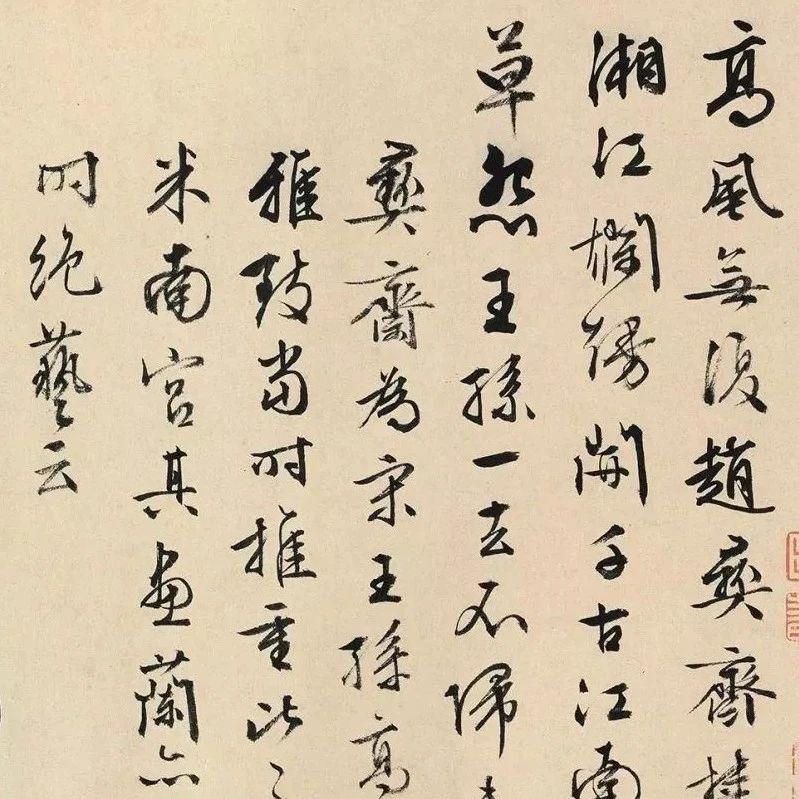 高風無復趙彝齋
湘江爛熳開千古江南
草怨王孫一去不歸
彝齋為宋王孫高
雅致當時推重比之
米南宮其畫蘭亦
時絕藝云